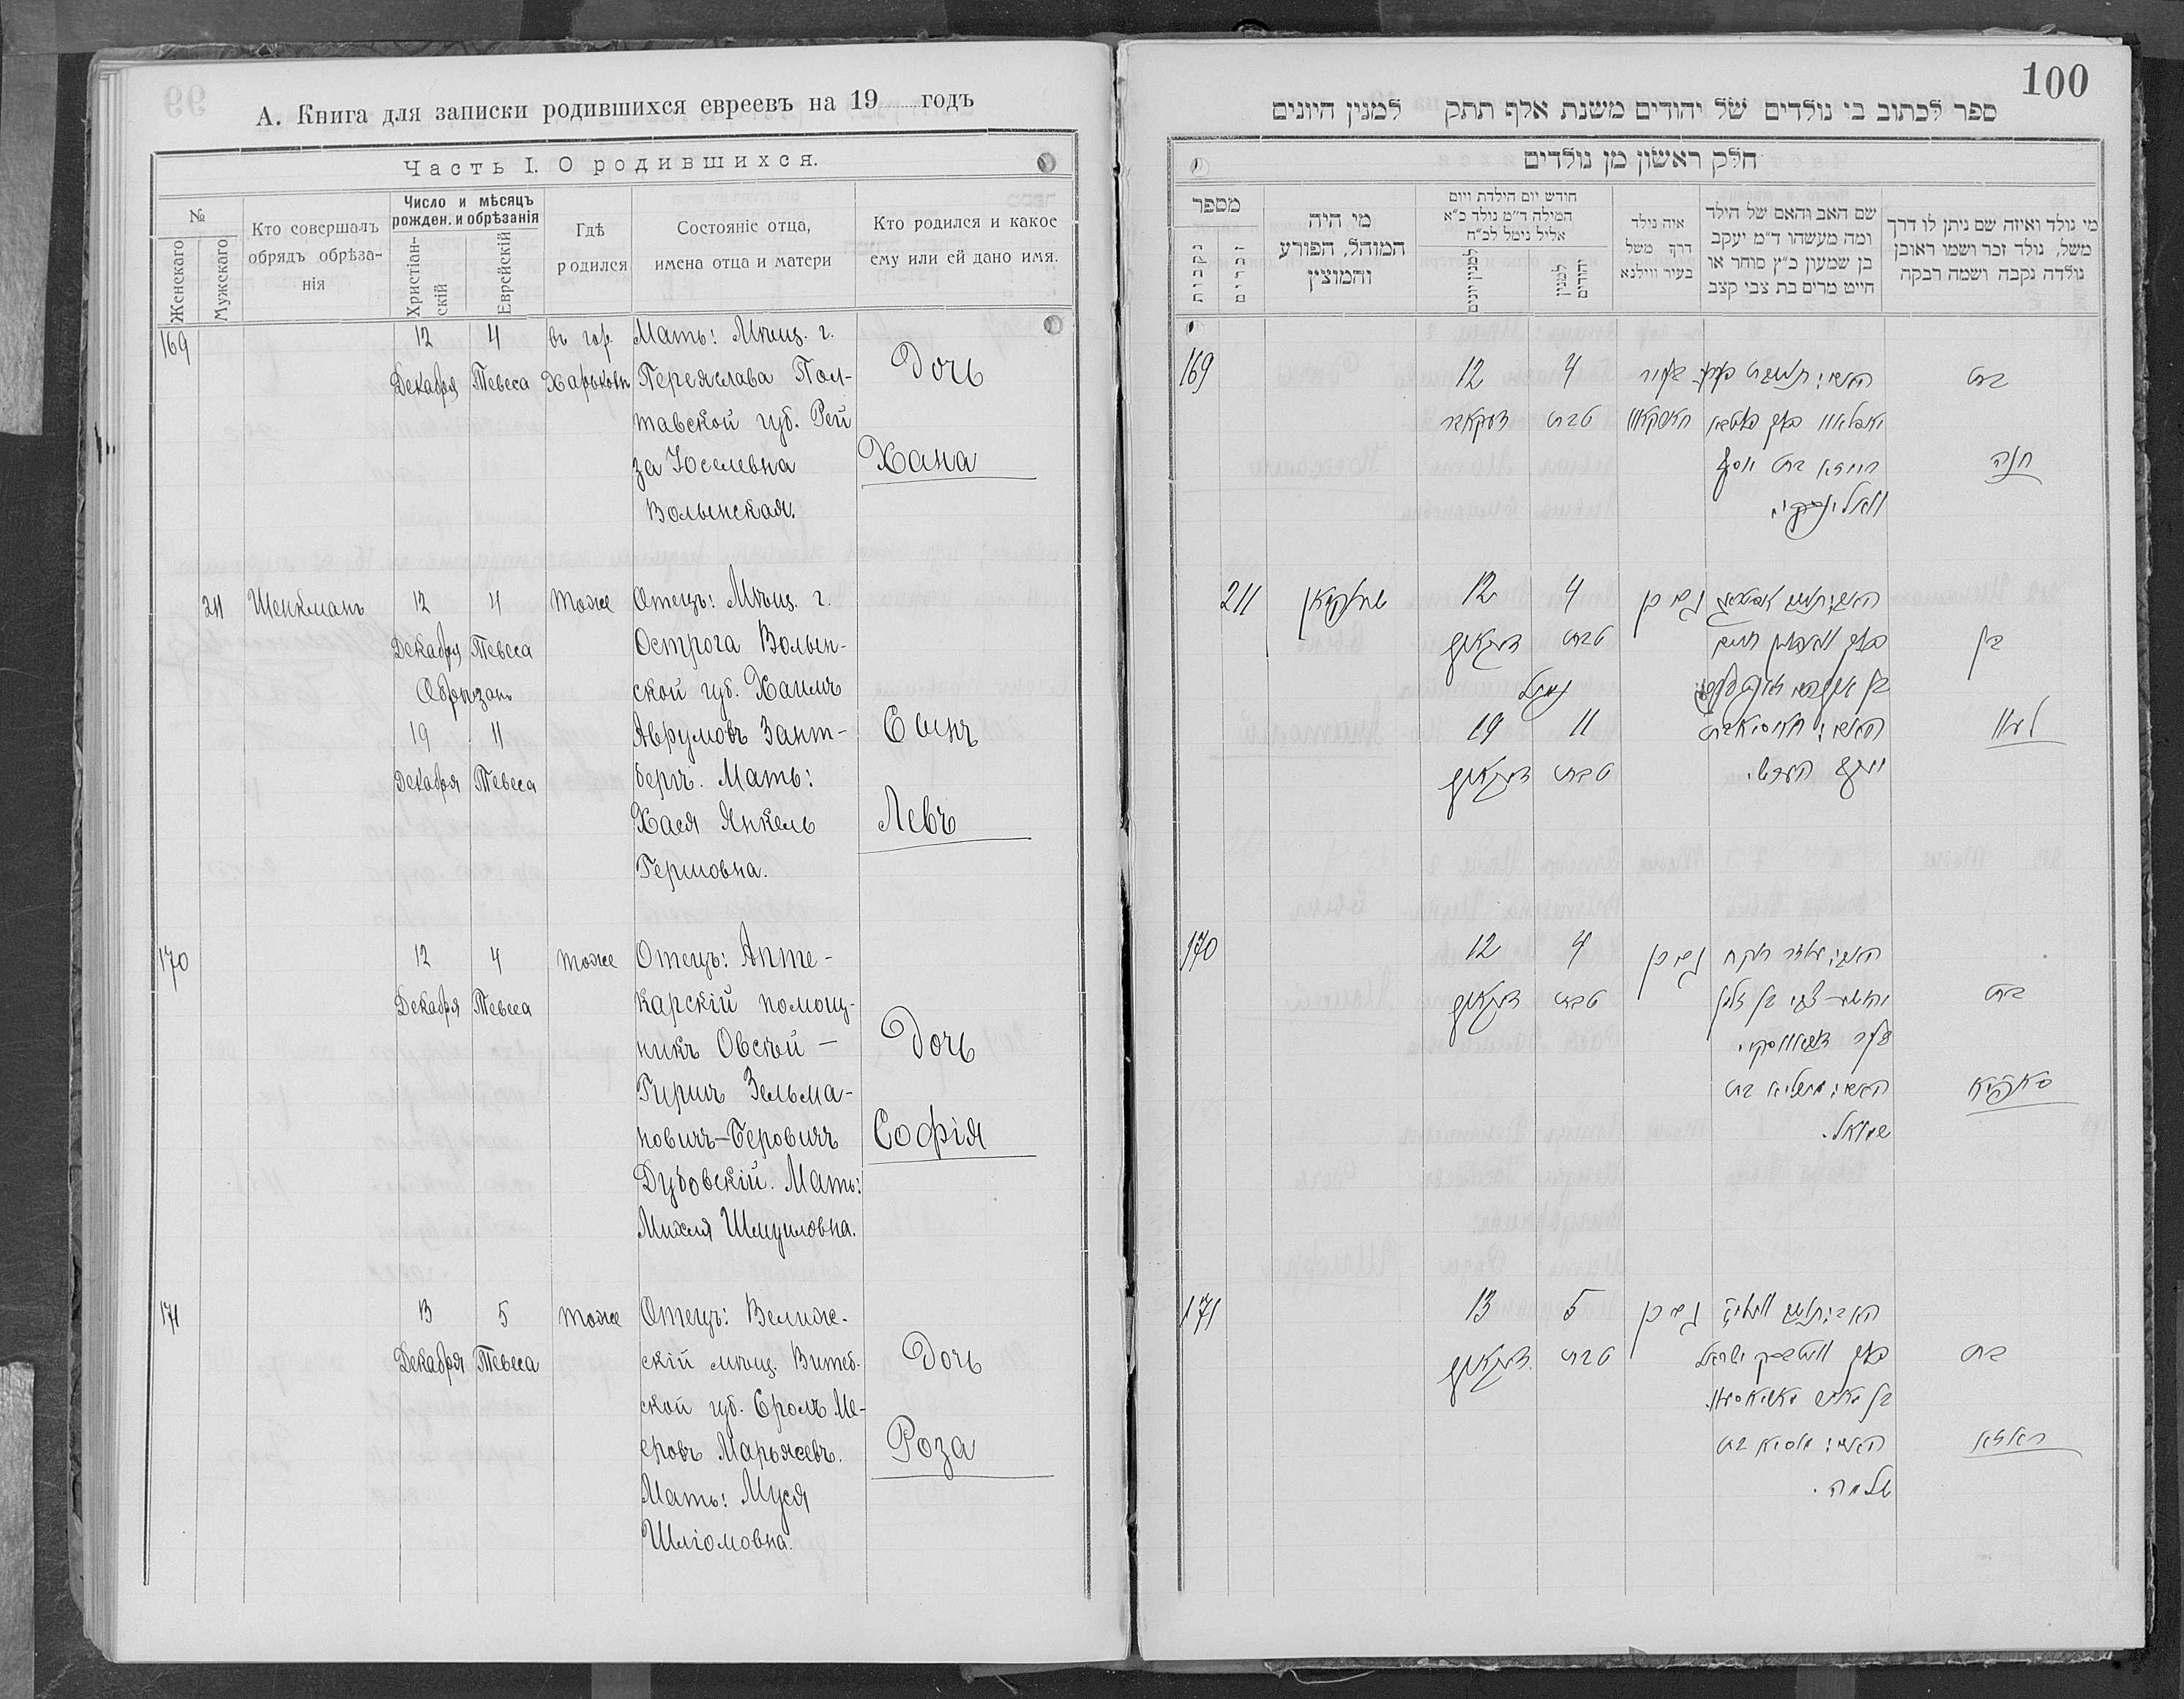 А. Книга для записки родившихся евреевъ на 19 годъ
Часть I. О родившихся.
№
Женскаго
Мужскаго
Кто совершалъ
обрядъ обрѣза-
нія
Число и мѣсяцъ
рожден. и обрѣзанія
Христіан-
скій
Еврейскій
Гдѣ
родился
Состояніе отца,
имена отца и матери
Кто родился и какое
ему или ей дано имя.
169
12
Декабря
4
Тевеса
въ гор.
Харьковѣ
Мать: Мѣщ. г.
Переяслава Пол-
тавской губ. Рей
за Іоселевна
Волынская.
Дочь
Хана
211
Шенкманъ
12
Декабря
4
Тевеса
Обрѣзанъ
19
Декабря
11
Тевеса
тоже
Отецъ: Мѣщ. г.
Острога Волын-
ской губ. Хаимъ
Аврумовъ Зант-
бергъ. Мать:
Хася Янкель
Гершовна.
Сынъ
Левъ
170
12
Декабря
4
Тевеса
тоже
Отецъ: Апте-
карскій помощ-
никъ Овсѣй -
Гиршъ Зельма-
новичъ-Беровичъ
Дубовскій. Мать:
Михля Шмуиловна.
Дочь
Софія
171
13
Декабря
5
Тевеса
тоже
Отецъ: Велиж-
скій мѣщ. Витеб-
ской губ. Сролъ Ме-
еровъ Марьясевъ.
Мать: Муся
Шліомовна.
Дочь
Роза
100
ספר לכתוב בי נולדים של יהודים משנת אלף תתק למנין היונים
חלק ראשון מן נולדים
מספר
נקבות
זכרים
מי היה
המוהל, הפורע
והמוצץ
חודש יום הילדת ויום
המילה ד״מ נולד כ״א
אליל נימל לכ״ח
למנין יונים
למנין
יהודים
איה נולד
דרך משל
בעיר ווילנא
שם האב והאם של הילד
ומה מעשהו ד״מ יעקב
בן שמעון כ״ץ סוחר או
חייט מרים בת צבי קצב
מי נולד ואיזה שם ניתן לו דרך
משל, נולד זכר ושמו ראובן
נולדה נקבה ושמה רבקה
169
12
דעקאבר
4
טבת
בת
חנה
211
שענקמאן
12
4
טבת
גם כן
נימל
19
11
טבת
בן
לעוו
170
12
4
טבת
גם כן
בת
סאפיא
שמואל.
171
13
5
טבת
גם כן
בת
ראזא
שלמה.